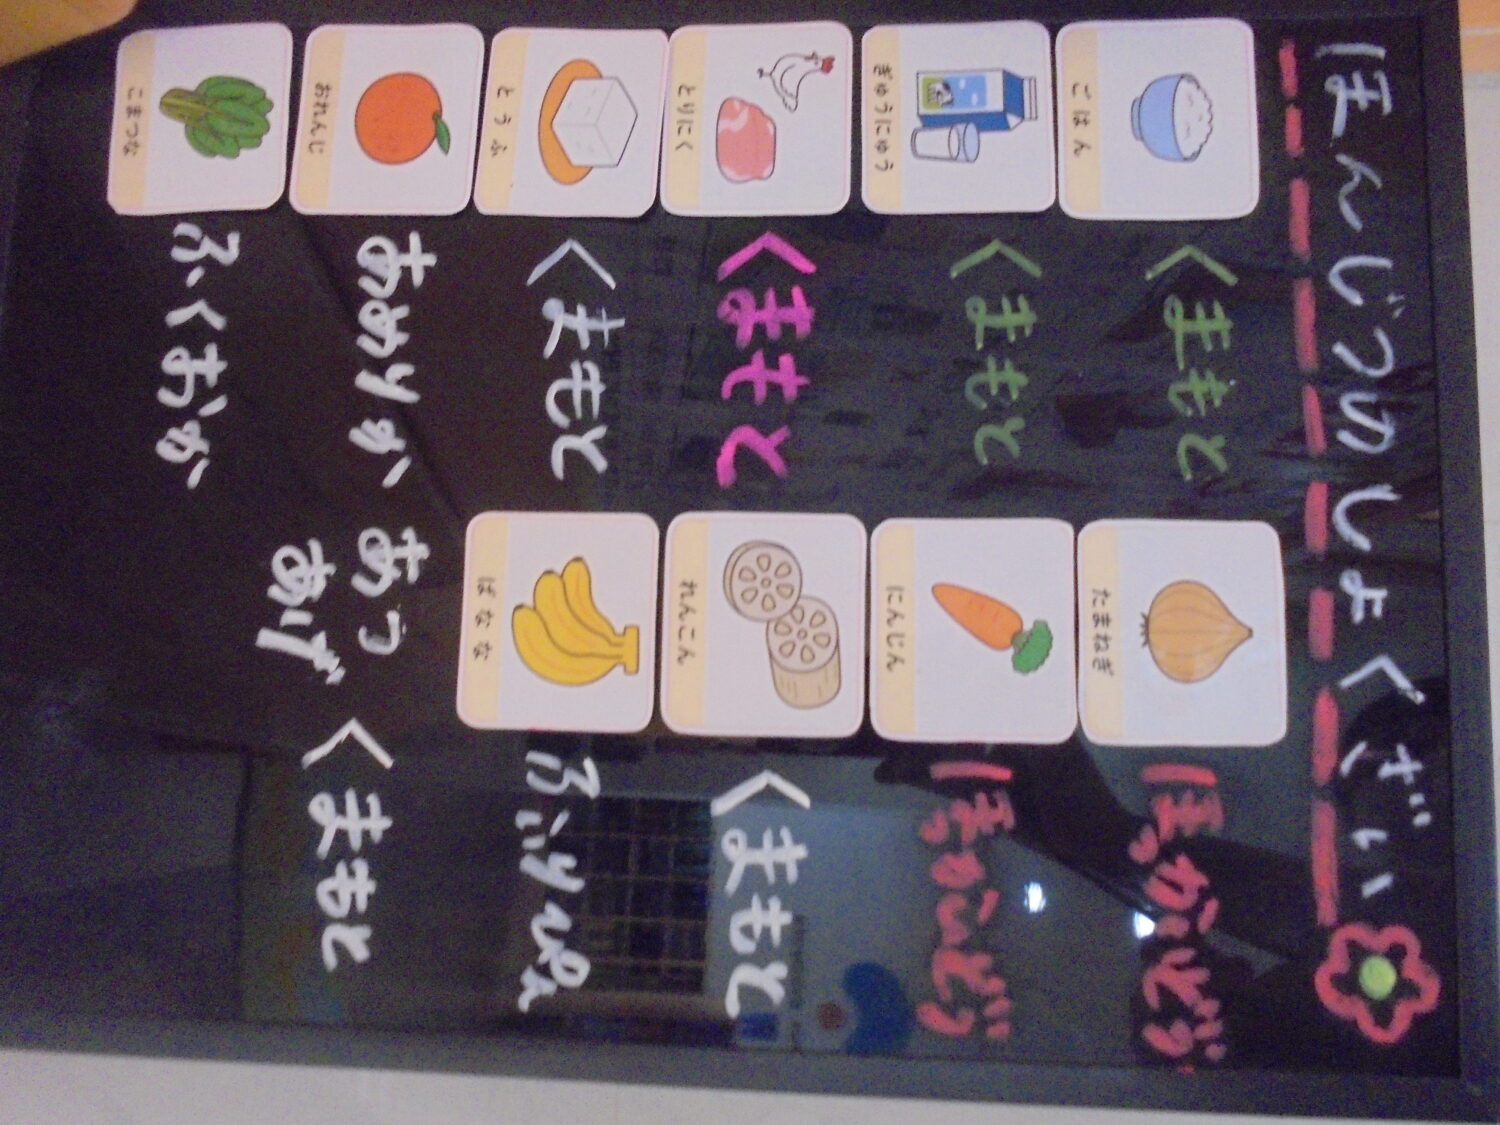 ほんじつのしょくざい
ごはん
くまもと
ぎゅうにゅう
くまもと
とりにく
くまもと
とうふ
くまもと
おれんじ
あめりか
こまつな
ふくおか
たまねぎ
ほっかいどう
にんじん
ほっかいどう
れんこん
くまもと
ばなな
ふぃりぴん
あつ
あげ
くまもと